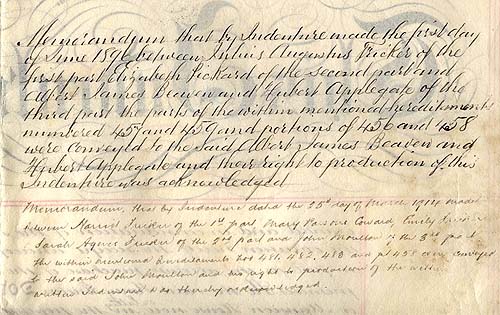 Memorandum that by Indenture made the first day
of June 1896 between Julius Augustus Tricker of the
first part Elizabeth Pickard of the second part and
Albert James Beaven and Hubert Applegate of the
third part the parts of the within mentioned hereditaments
numbered 457 and 459 and portions of 456 and 458
were conveyed to the said Albert James Beaven and
Hubert Applegate and their right to production of this
Indenture was acknowledged
Memorandum, that by Indenture dated the 25th day of March 1914 made
between Harriet of the 1st part Mary Coward, Emily
Sarah Agnes of the 2nd part and John Moulton of the 3rd part
the within mentioned hereditaments Nos 481, 482, 483 and pt 438 were conveyed
to the said John Moulton and his right to production of the within
written Indenture was thereby acknowledged